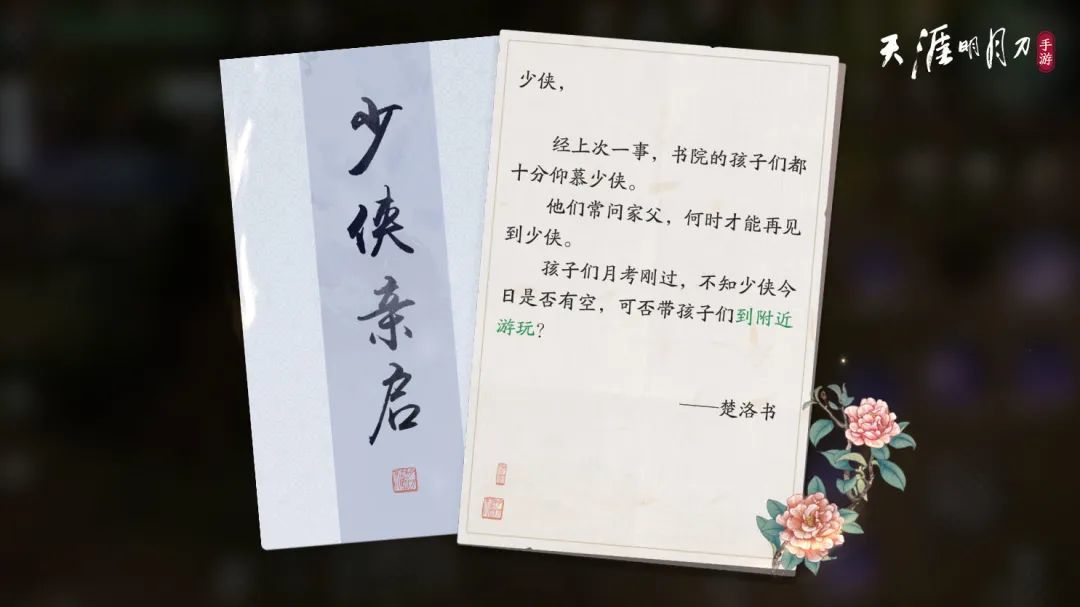 天涯明月刀
手游
少侠亲启
少侠，
经上次一事，书院的孩子们都
十分仰慕少侠。
他们常问家父，何时才能再见
到少侠。
孩子们月考刚过，不知少侠今
日是否有空，可否带孩子们到附近
游玩？
——楚洛书